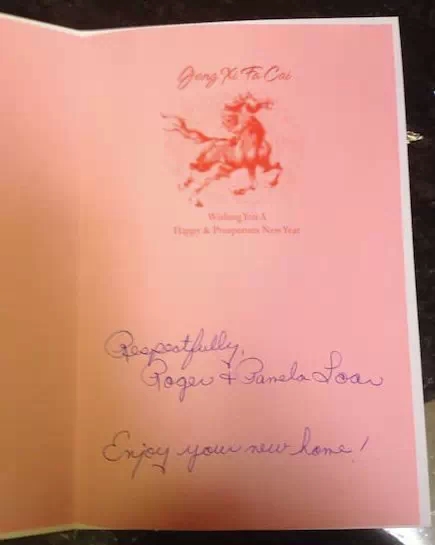 Gong Xi Fa Cai
Wishing You A
Happy & Prosperous New Year
Respectfully,
Roger & Pamela Loar
Enjoy your new home!